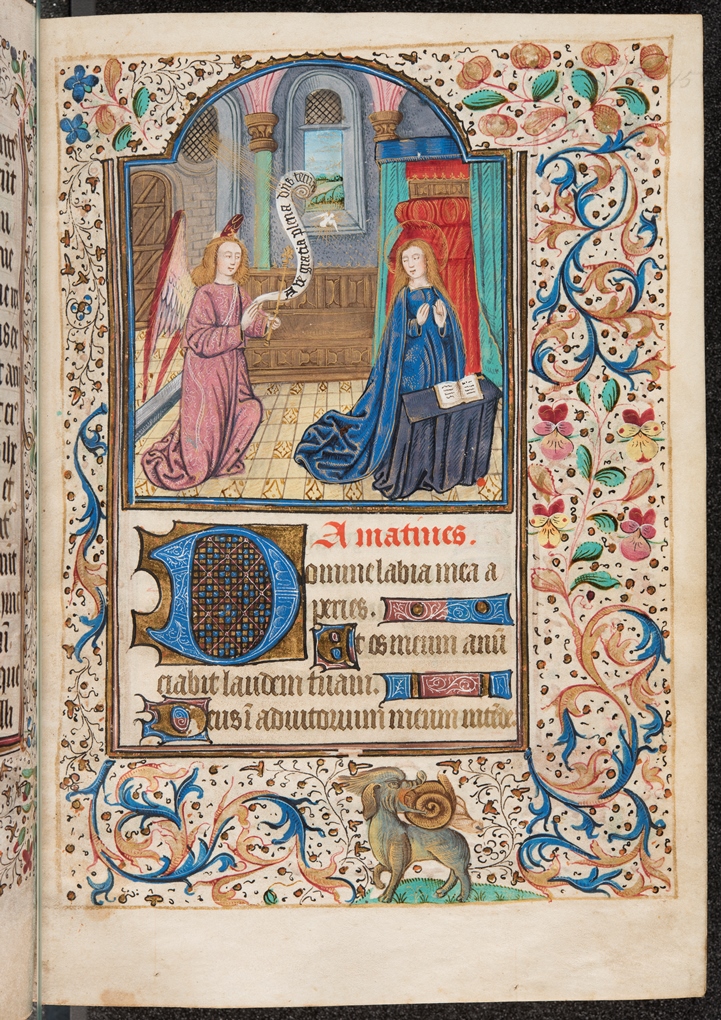 Aue gratia plena dñs tecū
A matines.
Domine labia mea a
peries.
Et os meum anū
ciabit laudem tuam.
Deus ī adiutorium meum intēde.